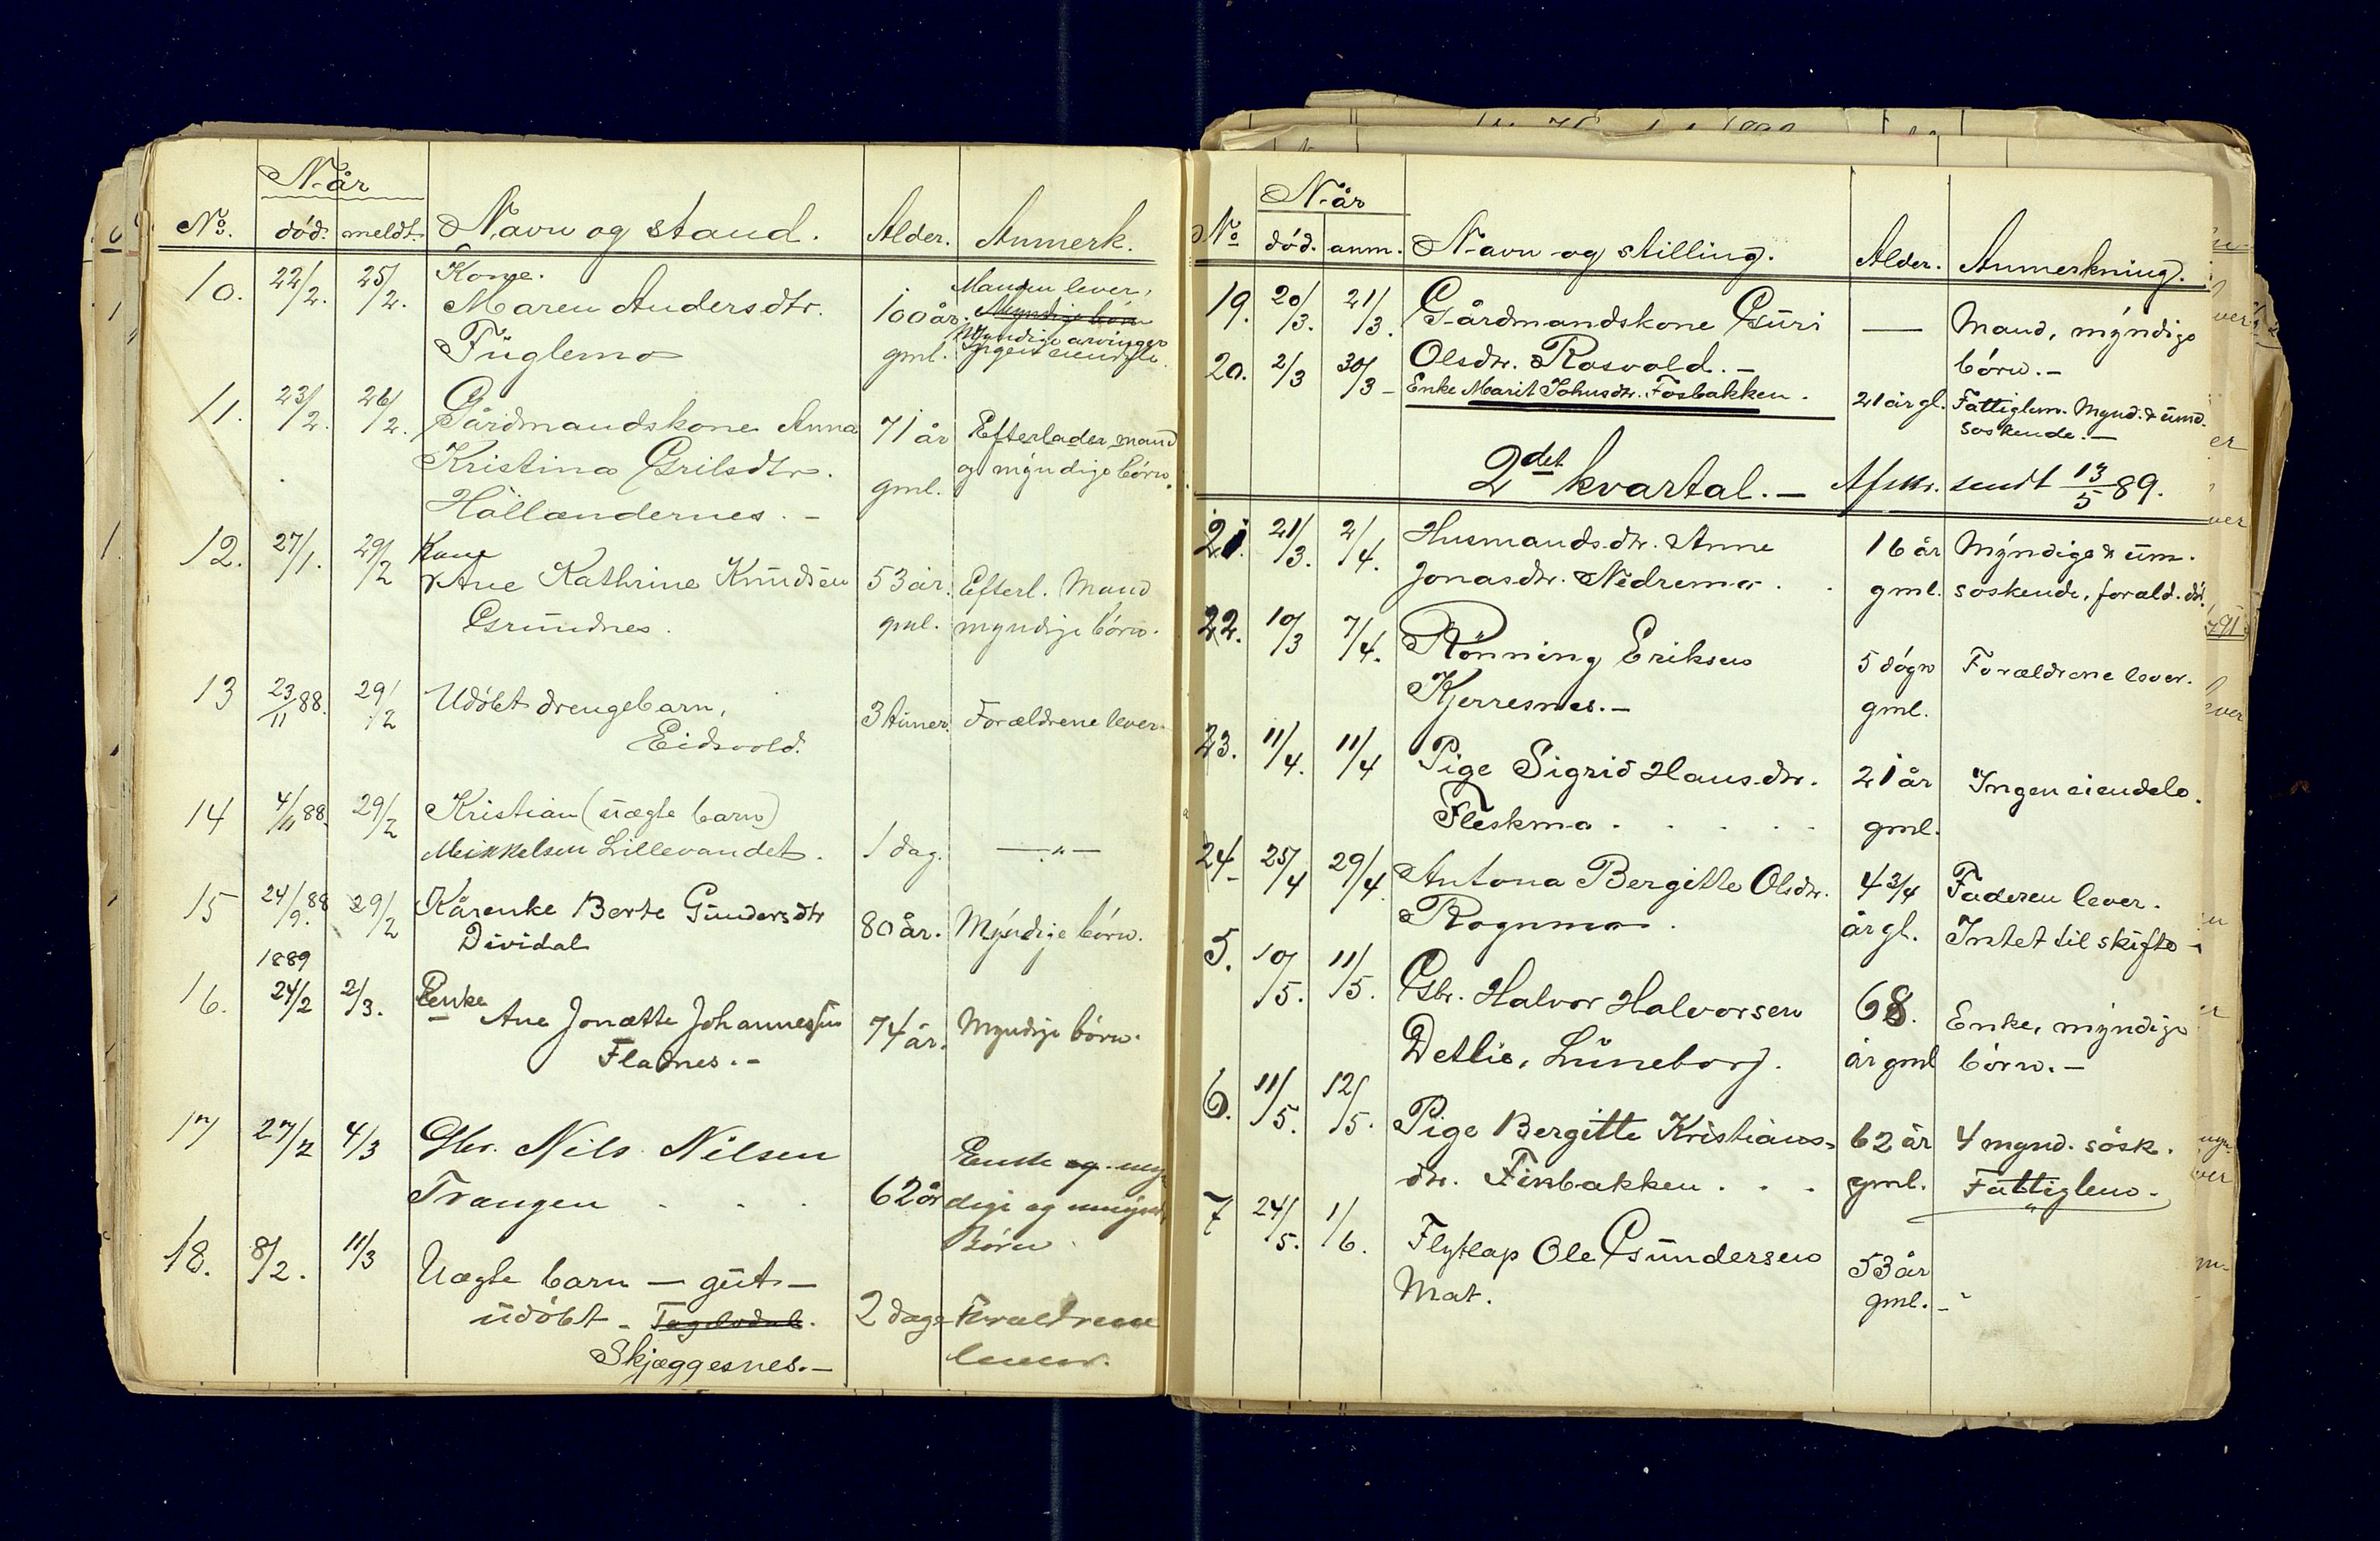 Når
No. död. meldt. Navn og stand. Alder. Anmerk.
10. 22/2. 25/2. Kone. Manden lever,
Maren Andersdtr. 100 år. Myndige börn
Fuglemo gml. Myndige arvinger
Ingen eiendele
11. 23/2. 26/2. Gårdmandskone Anna 71 år Efterlader mand
Kristina Grilsdtr. gml. og myndige börn.
Hållandernes. –
12. 27/1. 29/2 Kone
Ane Kathrine Knudsen 53 år. Efterl. Mand
Grundnes. gml. myndige börn.
13 23/11 88. 29/2 Udöbt drengebarn, 3 timer. Forældrene lever.
Eidsvold.
14 4/11 88. 29/2 Kristian (uægte barn)
Meikkelsen Lillevandet. 1 dag. — „ —
15 24/9. 88 29/2 Kårenke Berte Gundersdtr 80 år. Myndige börn.
Dividal
1889
16. 24/2 2/3. Enke
Ane Jonette Johannessen 74 år. Myndige börn.
Fladnes. –
17 27/2 4/3 Gbr. Nils Nilsen Enke og myn
Trangen . . . 62 år dige og umynd
Börn
18. 8/2. 11/3 Uægte barn — gut —
udöbt – 2 dage Forældrene
Skjæggesnes. – lever.
Når
No död. anm. Navn og stilling. Alder. Anmerkning.
19. 20/3. 21/3. Gårdmandskone Guri — Mand, myndige
Olsdtr. Rosvold. – börn. –
20. 2/3 30/3 – Enke Marit Johnsdtr. Fosbakken. 21 år gl. Fattiglem. Mynd. & umd.
söskende. –
2det kvartal. – Afskr. sendt 13/5 89.
21. 21/3. 2/4. Husmandsdtr. Anne 16 år Myndige & um.
Jonasdtr. Nedremo. . gml. söskende, foræld. död.
22. 10/3 7/4. Rönning Eriksen 5 dögn Forældrene lever.
Kjerresnes. – gml.
23. 11/4. 11/4 Pige Sigrid Hansdtr. 21 år Ingen eiendele.
Fleskmo . . . . . gml.
24 – 25/4 29/4. Antona Bergitte Olsdtr. 4 3/4 Faderen lever.
Rognmo . år gl. Intet til skifte –
5. 10/5. 11/5. Gbr. Halvor Halvorsen 68. Enke, myndige
Detlie, Luneborg. år gml börn. –
6. 11/5. 12/5. Pige Bergitte Kristians- 62 år 4 mynd. sösk.
dtr. Finbakken . . . gml. Fattiglem.
7 24/5. 1/6. Flytlap Ole Gundersen 53 år
Mat. gml. –